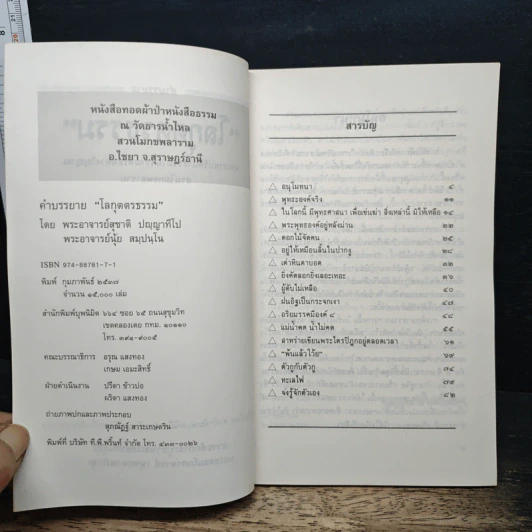 หนังสือทอดผ้าป่าหนังสือธรรม
ณ วัดธารน้ำไหล
สวนโมกขพลาราม
อ.ไชยา จ.สุราษฎร์ธานี
คำบรรยาย "โลกุตตรธรรม"
โดย พระอาจารย์สุชาติ ปญฺญาทีโป
พระอาจารย์นุ้ย สมฺปนฺโน
ISBN 974-88781-7-1
พิมพ์ กุมภาพันธ์ ๒๕๓๗
จำนวน ๑๕,๐๐๐ เล่ม
สำนักพิมพ์บุพนิมิต ๖๖๔ ซอย ๖๕ ถนนสุขุมวิท
เขตคลองเตย กทม. ๑๐๑๑๐
โทร. ๓๙๑-๙๐๐๕
คณะบรรณาธิการ อรุณ แสงทอง
เกษม เอมะสิทธิ์
ฝ่ายดำเนินงาน ปรีดา ข้าวบ่อ
ผริดา แสงทอง
ถ่ายภาพปกและภาพประกอบ
สุภณัฏฐ์ สาระเกษตริน
พิมพ์ที่ บริษัท ที.พี.พริ้นท์ จำกัด โทร. ๔๓๓-๐๐๒๖
สารบัญ
△ อนุโมทนา ๔
△ พุทธะองค์จริง ๑๑
△ ในโลกนี้ มีพุทธศาสนา เพื่อเข่นฆ่า สิ่งเหล่านี้ มิให้เหลือ ๑๔
△ พระพุทธองค์อยู่หลังม่าน ๒๓
△ ดอกไม้จัดคน ๒๕
△ อยู่ให้เหมือนลิ้นในปากงู ๒๘
△ เต่าหินตาบอด ๓๒
△ ยิ่งคัดลอกยิ่งเลอะเทอะ ๓๖
△ ผู้ดับไม่เหลือ ๔๐
△ ฝนอิฐเป็นกระจกเงา ๔๗
△ อริยมรรคมีองค์ ๘ ๔๘
△ แม่น้ำคด น้ำไม่คด ๕๕
△ สาหร่ายเขียนพระไตรปิฎกอยู่ตลอดเวลา ๖๑
△ "พ้นแล้วโว้ย" ๖๙
△ ตัวกูกับตัวกู ๗๔
△ ทะเลไฟ ๗๙
△ จงรู้จักตัวเอง ๘๒